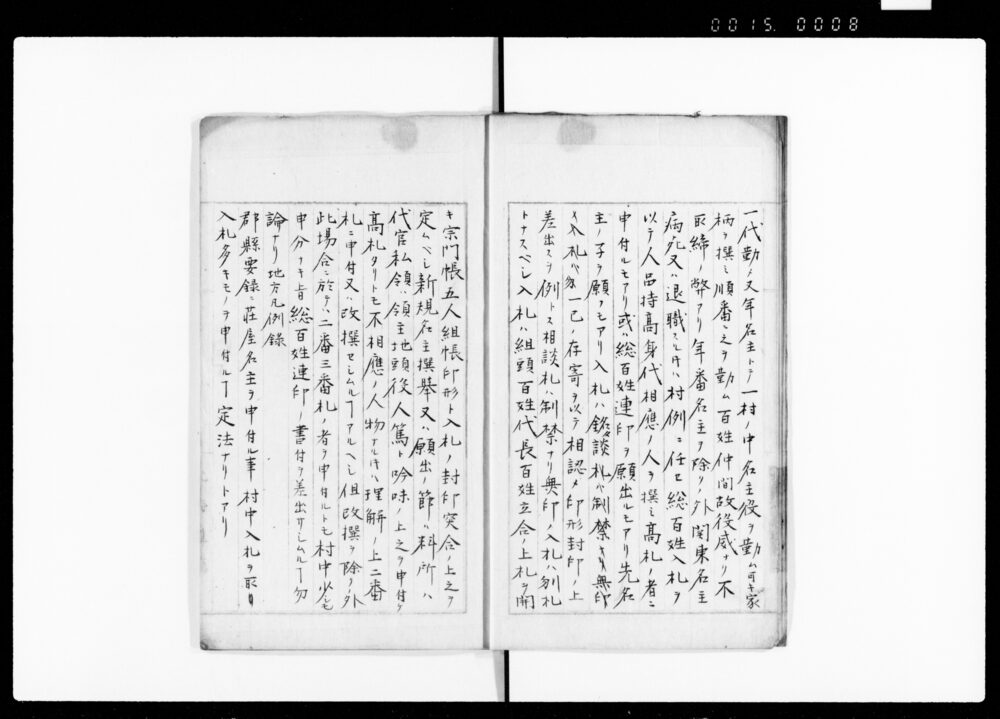 0015. 0008
一代勤メ又年名主トテ一村ノ中名主役ヲ勤ム可キ家
柄ヲ撰ミ順番ニ之ヲ勤ム百姓仲間故役威ナリ不
取締ノ弊アリ年番名主ヲ除クノ外関東名主
病死又ハ退職スル時ハ村例ニ任セ総百姓入札ヲ
以テ人品持高身代相應ノ人ヲ撰ミ高札ノ者ニ
申付ルモアリ或ハ総百姓連印ヲ願出ルモアリ先名
主ノ子ヲ願フモアリ入札ハ銘談札ハ制禁ナリ無印
入札ハ家一己ノ存寄ヲ以テ相認メ印形封印ノ上
差出スヲ例トス相談札ハ制禁ナリ無印ノ入札ハ別札
トナスベシ入札ハ組頭百姓代長百姓立合ノ上札ヲ開
キ宗門帳五人組帳印形ト入札ノ封印突合ノ上之ヲ
定ムベシ新規名主撰擧又ハ願出ノ節ハ料所ハ
代官私領ハ領主地頭役人篤ト吟味ノ上之ヲ申付ケ
高札タリトモ不相應ノ人物ナル時ハ理解ノ上二番
札ニ申付又ハ改撰セシムルヿアルヘシ但改撰ヲ除クノ外
此場合ニ於テハ二番三番札ノ者ヲ申付ルトモ村中少シモ
申分ナキ旨総百姓連印ノ書付ヲ差出サシムルヿ勿
論ナリ地方凡例録
郡縣要録ニ荘屋名主ヲ申付ル事村中入札ヲ取リ
入札多キモノヲ申付ルヿ定法ナリトアリ